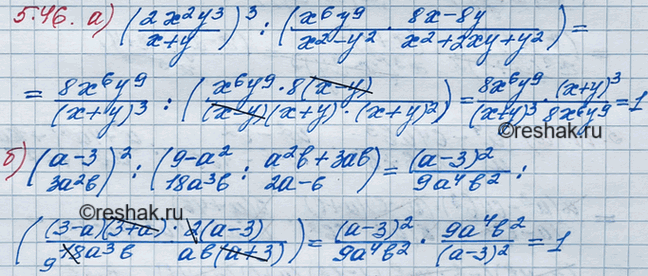 5.46. а) (2x²y³/(x+y))³ : (x⁶y⁹/(x²-y²) · (8x-8y)/(x²+2xy+y²)) =
= 8x⁶y⁹/(x+y)³ : (x⁶y⁹·8(x-y)/((x-y)(x+y)·(x+y)²)) = 8x⁶y⁹/(x+y)³ · (x+y)³/8x⁶y⁹ = 1
©reshak.ru
б) ((a-3)/3a²b)² : ((9-a²)/18a³b : (a²b+3ab)/(2a-6)) = (a-3)²/9a⁴b² :
©reshak.ru
((3-a)(3+a)·2(a-3)/(9 18a³b ab(a+3))) = (a-3)²/9a⁴b² · 9a⁴b²/(a-3)² = 1